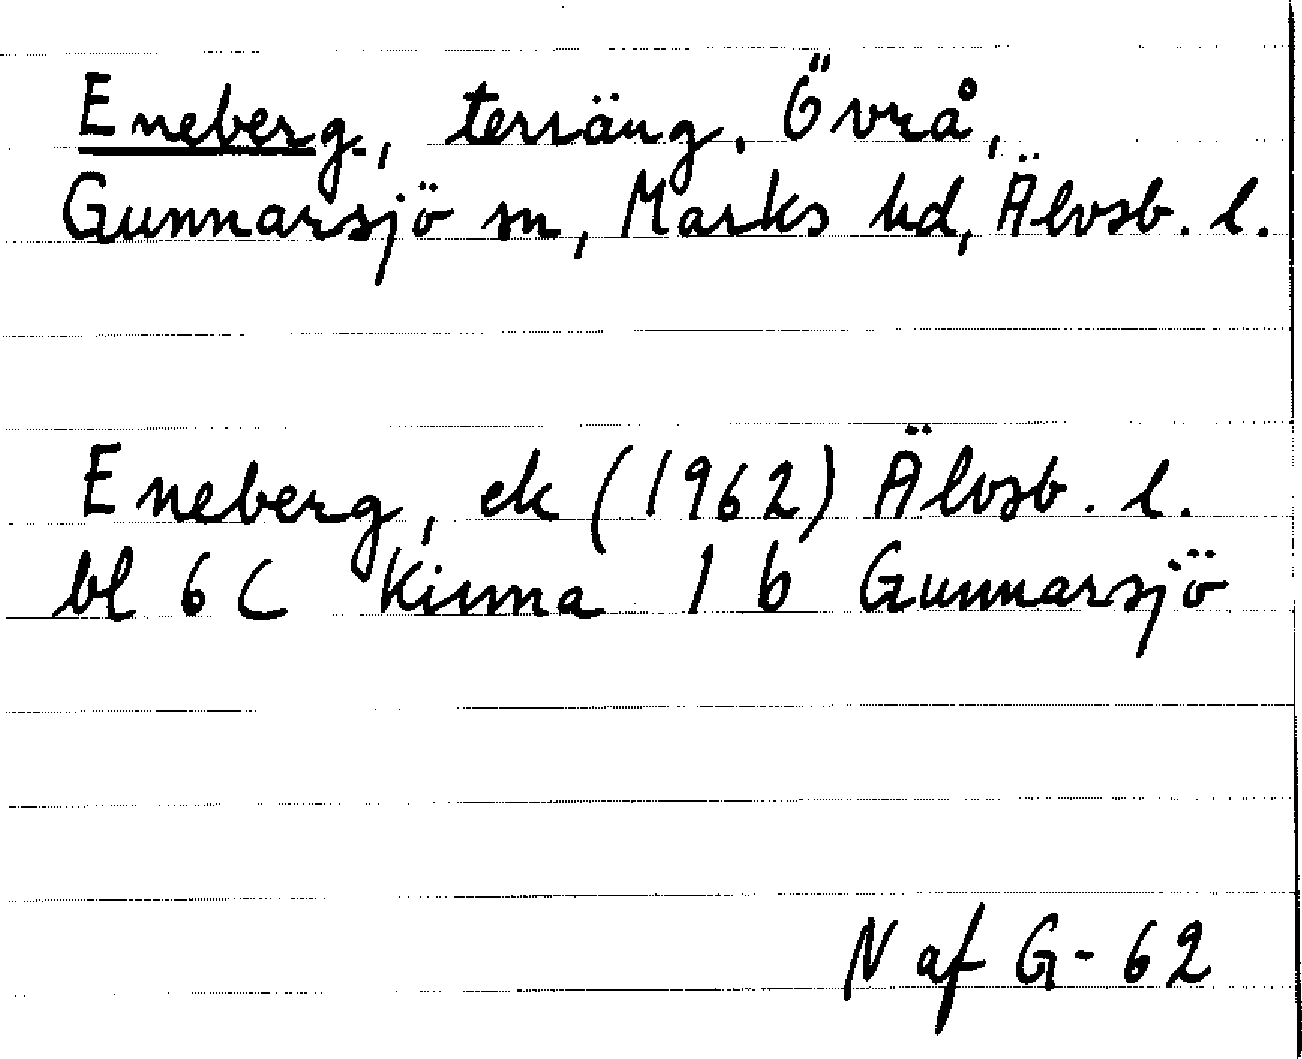 Eneberg, terräng. Övrå,
Gunnarsjö sn, Marks hd, Älvsb. l.
Eneberg, ek (1962) Älvsb. l.
bl 6 C Kinna 1 b Gunnarsjö
N af G - 62